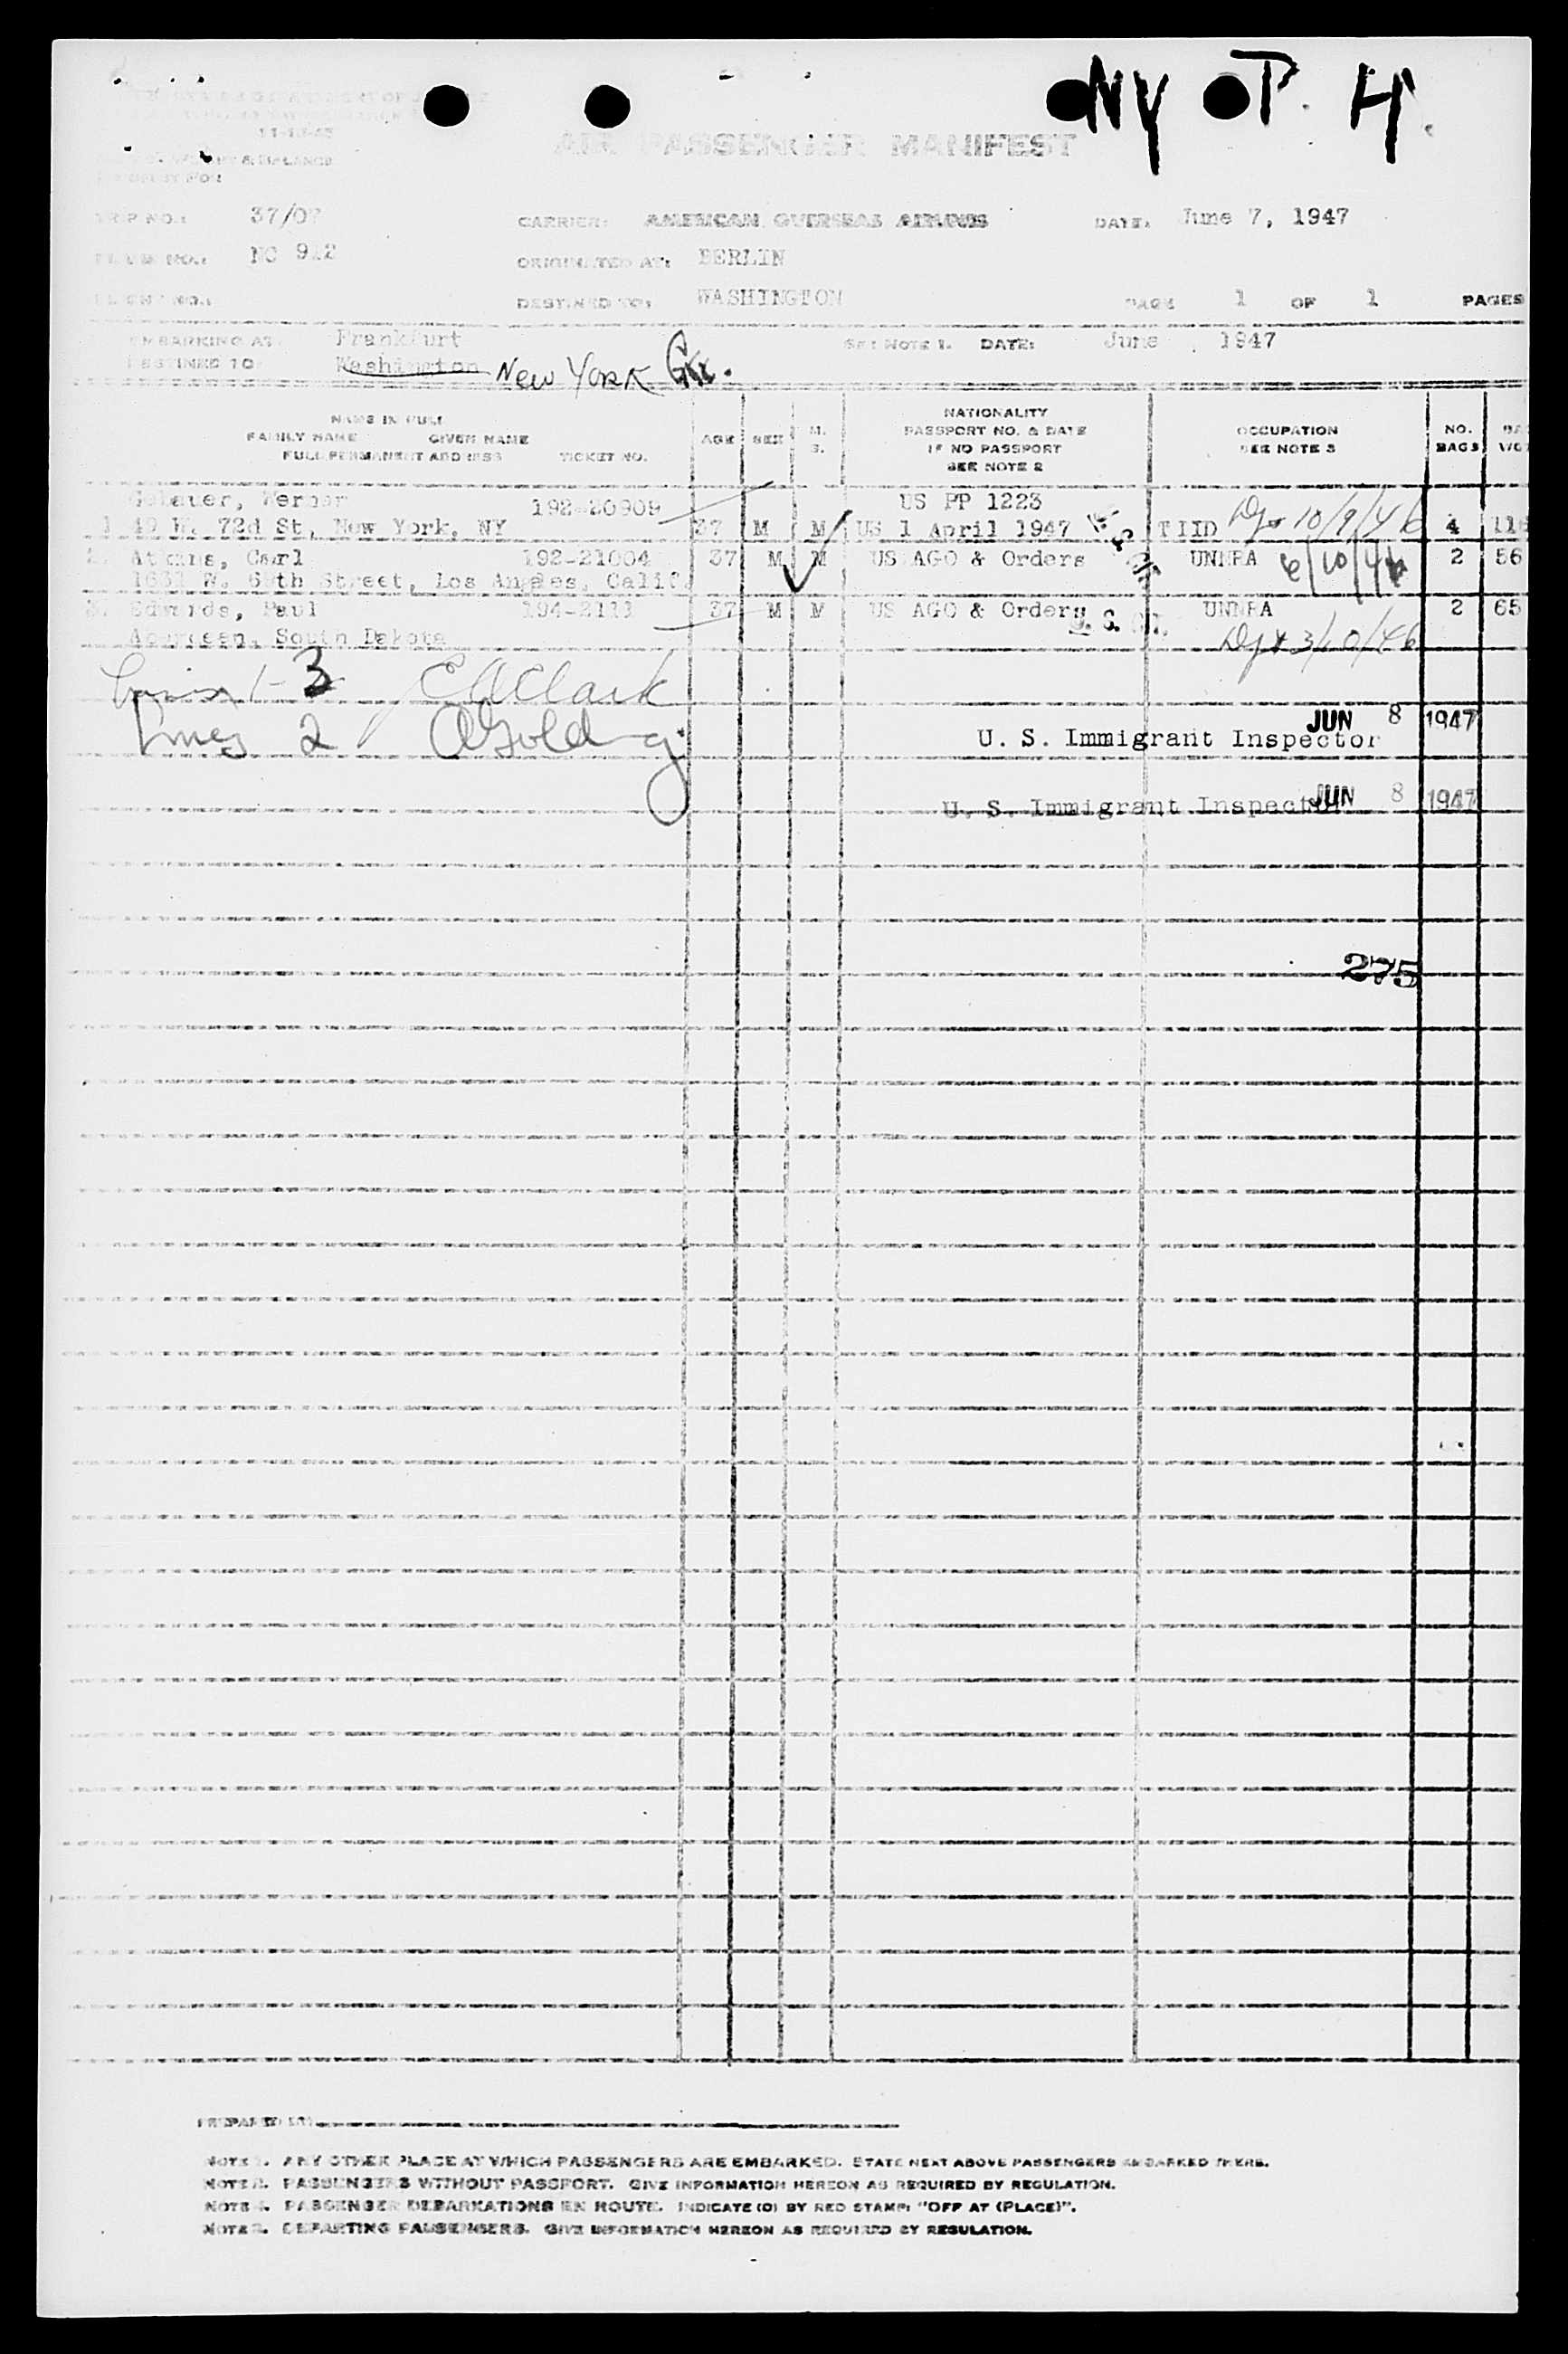 NY OP. H.
11-18-45
AIR PASSENGER MANIFEST
TRIP NO.: 37/07 CARRIER: AMERICAN OVERSEAS AIRLINES DATE: June 7, 1947
PLANE NO.: NC 912 ORIGINATED AT: BERLIN
DESTINED TO: WASHINGTON PAGE 1 OF 1 PAGES
EMBARKING AT: Frankfurt SEE NOTE 1. DATE: June 1947
DESTINED TO Washington New York
NAME IN FULL
FAMILY NAME GIVEN NAME
FULL PERMANENT ADDRESS TICKET NO.
AGE SEX M. S.
NATIONALITY
PASSPORT NO. & DATE
IF NO PASSPORT
SEE NOTE 2
OCCUPATION
SEE NOTE 3
NO. BAGS
Werner 192-20909 US PP 1223
1 49 W. 72d St, New York, NY 37 M M US 1 April 1947 TIID 10/9/46 4
2. Atkins, Carl 192-21004 37 M M US AGO & Orders UNRRA 6/10/46 2 56
Street, Los Angeles, Calif.
3. Edwards, Paul 194-2111 37 M M US AGO & Orders UNRRA 2 65
Aberdeen, South Dakota
1-3 E A Clark
Lines 2
JUN 8 1947
U. S. Immigrant Inspector
JUN 8 1947
U. S. Immigrant Inspector
275
PREPARED BY
NOTE 1. ANY OTHER PLACE AT WHICH PASSENGERS ARE EMBARKED. STATE NEXT ABOVE PASSENGERS EMBARKED THERE.
NOTE 2. PASSENGERS WITHOUT PASSPORT. GIVE INFORMATION HEREON AS REQUIRED BY REGULATION.
NOTE 4. PASSENGER DEBARKATIONS EN ROUTE. INDICATE (O) BY RED STAMP: "OFF AT (PLACE)".
NOTE 3. DEPARTING PASSENGERS. GIVE INFORMATION HEREON AS REQUIRED BY REGULATION.